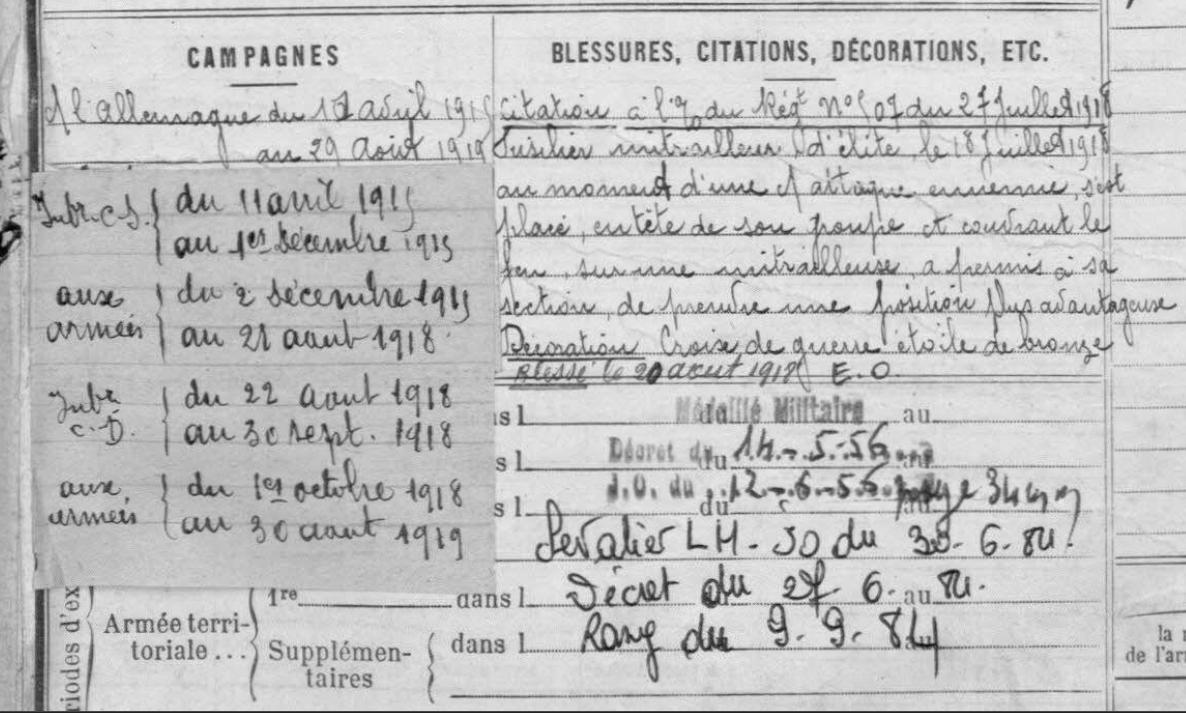 CAMPAGNES
A l'Allemagne du 11 Avril 1915
au 29 Août 1919
Intr. C S. du 11 avril 1915
au 1er décembre 1915
aux armées du 2 décembre 1915
au 21 aout 1918
Intr C.D. du 22 aout 1918
au 30 sept. 1918
aux armées du 1er octobre 1918
au 30 aout 1919
BLESSURES, CITATIONS, DÉCORATIONS, ETC.
Citation à l'o/ du Régt N° 507 du 27 Juillet 1918
Fusilier mitrailleur d'élite, le 18 Juillet 1918
au moment d'une Ct attaque ennemie, s'est
placé, en tête de son groupe et couvrant le
feu, sur une mitrailleuse, a permis à sa
section, de prendre une position plus avantageuse
Décoration Croix de guerre étoile de bronze
Blessé le 20 aout 1918 E.O.
ns l Médaillé Militaire au
s l Décret du 14-5-56
s l J.O. du 12-6-56 page
Chevalier LH - JO du 30-6-84
dans l Décret du 27 6. au 84.
dans l Rang du 9.9.84
riodes d'ex
Armée terri-
toriale ...
1re
Supplémen-
taires
la
de l'ar